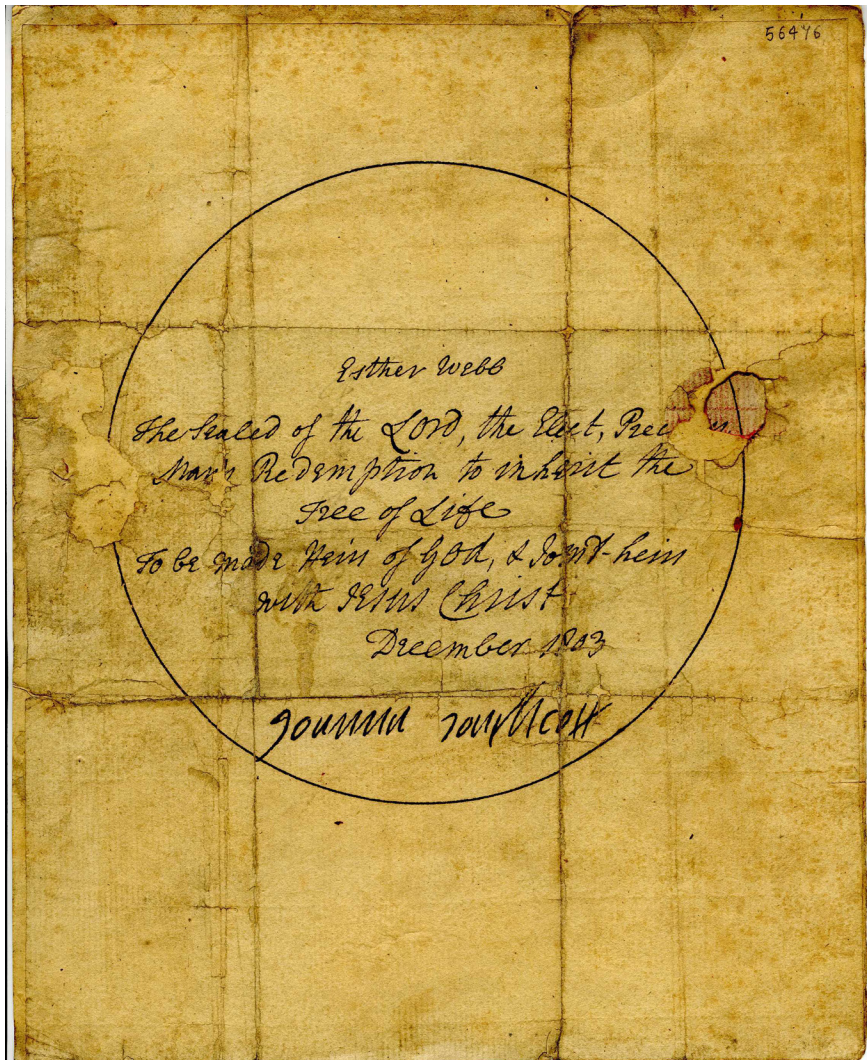 56476
Esther Webb
The Sealed of the Lord, the Elect, Prec
Man's Redemption to inherit the
Tree of Life
To be made Heirs of God, & Joint-heirs
with Jesus Christ
December 1803
Joanna Southcott